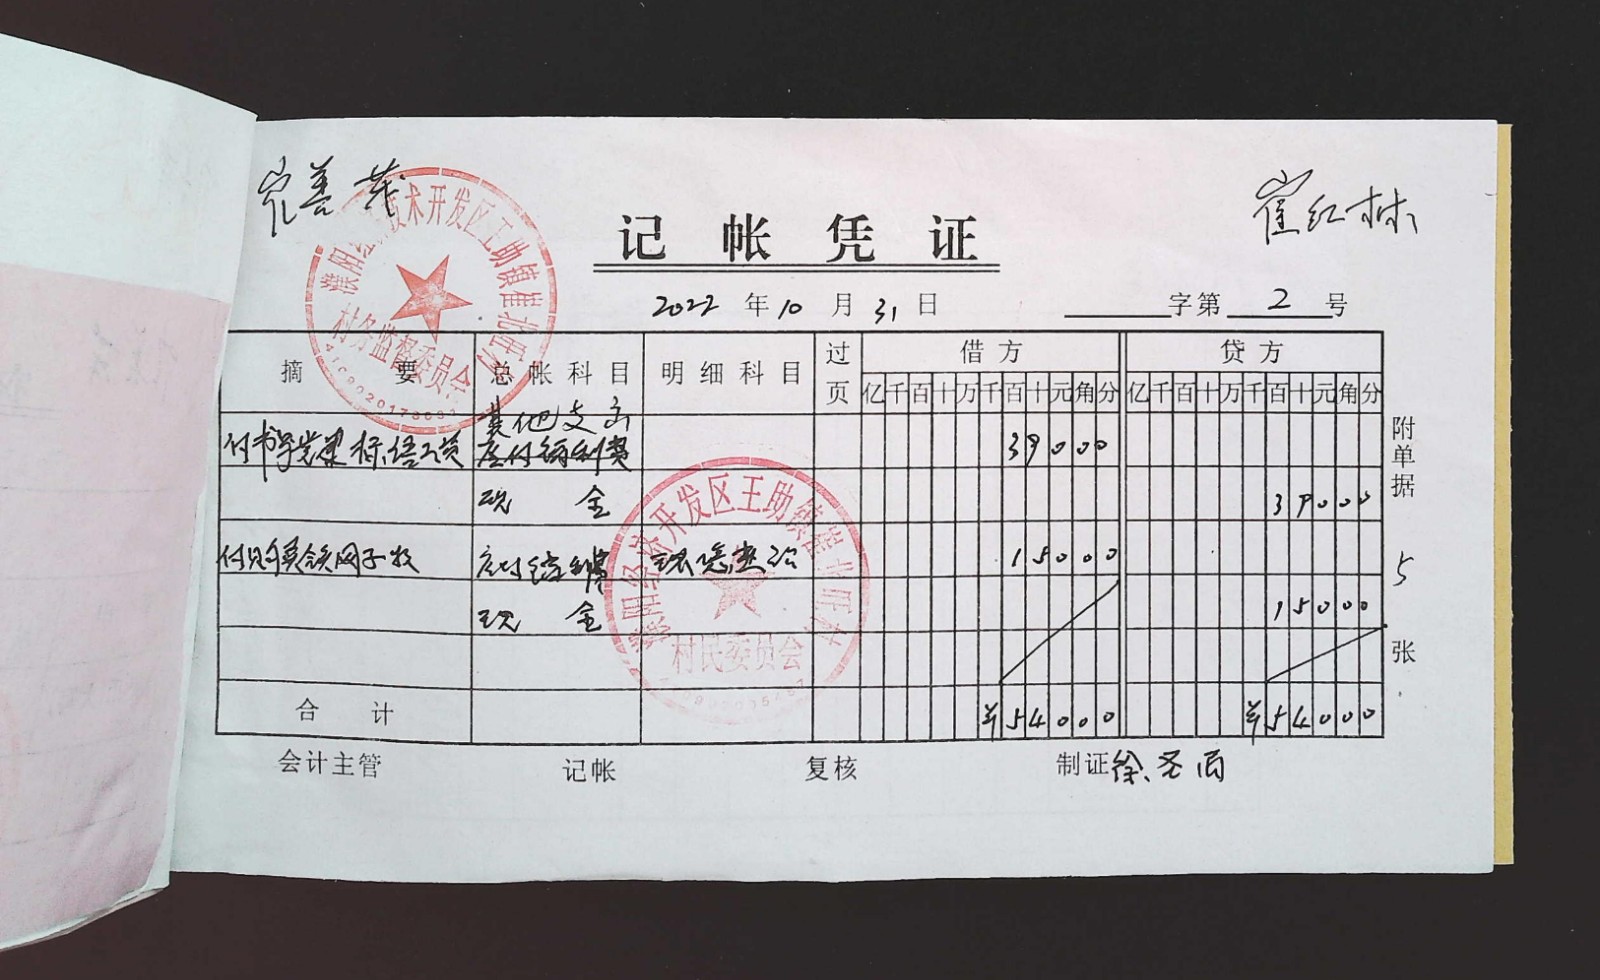 崔善
崔红林
记帐凭证
2022年10月31日
字第2号
摘要 总帐科目 明细科目 过页 借方 贷方
亿千百十万千百十元角分 亿千百十万千百十元角分
其他支出
付书学党建标语工资 应付福利费 39000
现金 39000
付 铁网子款 应付福利费 环境整治 15000
现金 15000
合计 ¥54000 ¥54000
附单据5张
会计主管 记帐 复核 制证 徐
技术开发区王助镇崔北旺村
村务监督委员会
濮阳经济开发区王助镇崔北旺村
村民委员会